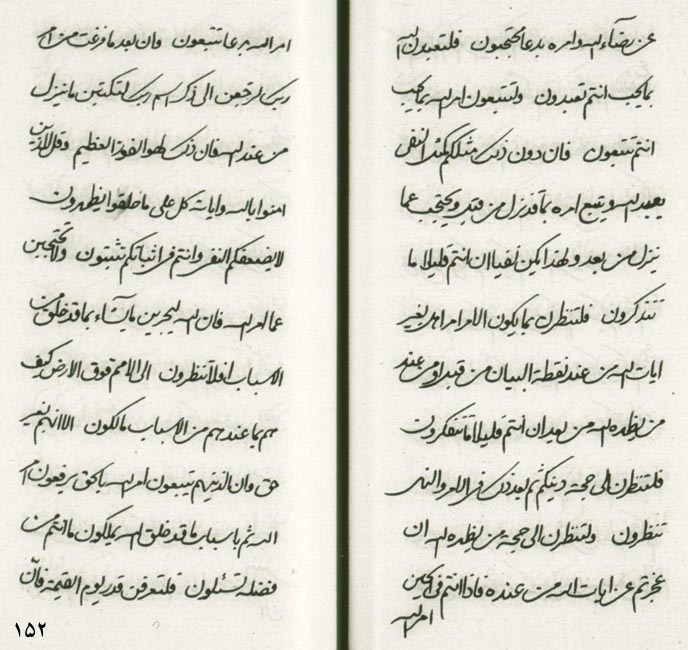 عن رضاء الله وامره بدعا محتجبون فلتعبدن الله
بما يحب انتم تعبدون ولتتبعون امر الله بما يحب
انتم تتبعون فان دون ذلك مثلكم كمثل النفي
يعبد الله ويتبع امره بما قد نزل من قبل ويحتجب عما
ينزل من بعد ولهذا يكن نفيا ان انتم قليلا ما
تتذكرون فلتنظرن بما يكون الامر امر الله بغير
ايات الله من عند نقطة البيان من قبل او من عند
من يظهره الله من بعد ان انتم قليلا ما تتفكرون
فلتنظرن الى حجة دينكم ثم بعد ذلك في الامر والنهي
تنظرون ولتنظرن الى حجة من يظهره الله ان
عجزتم عن ايات الله من عنده فاذا انتم في الحين
امر الله
امر الله بدعا تتبعون وان بعد ما فرغت من امر
ربك لترجعن الى ذكر اسم ربك لتكتبن ما ينزل
من عند الله فان ذلك لهو الفوز العظيم وقل للذين
امنوا بالله واياته كل على ما خلقوا يظهرون
لا يضعفكم النفي وانتم في اثباتكم تثبتون ولا تحتجبن
عما امر الله فان الله ليجرين ما يشاء بما قد خلق من
الاسباب افلا تنظرون الى الامم فوق الارض كيف
هم بما عندهم من الاسباب مالكون الا انهم بغير
حق وان الذينهم يتبعون امر الله بالحق يرفعون امر
الله ثم باسباب ما قد خلق الله يملكون ما انتم من
فضله تسئلون فلتعرفن قدر يوم القيمة فانّ
١٥٢